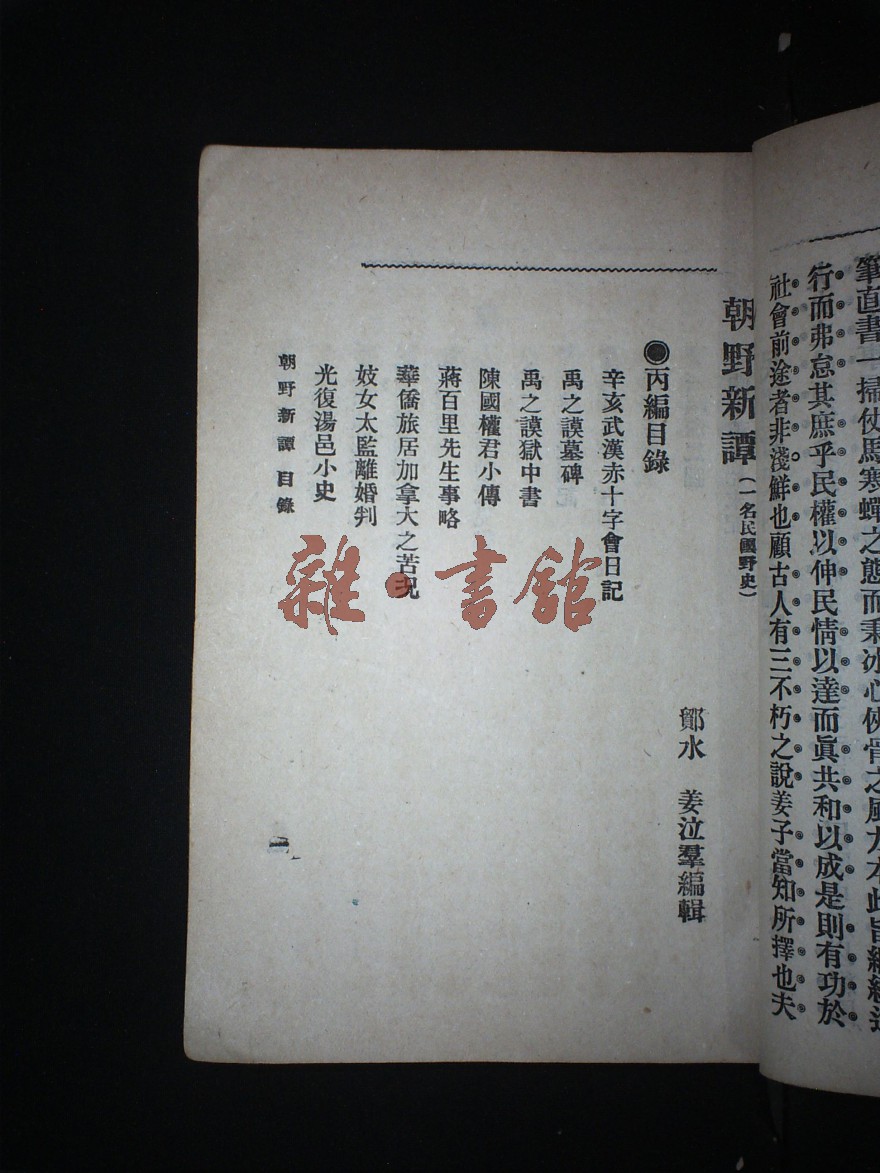 筆直書一掃仗馬寒蟬之態而秉冰心俠骨之風
行而弗怠其庶乎民權以伸民情以達而眞共和以成是則有功於
社會前途者非淺鮮也顧古人有三不朽之說姜子當知所擇也夫
朝野新譚(一名民國野史)
鄮水 姜泣羣編輯
◉丙編目錄
辛亥武漢赤十字會日記
禹之謨墓碑
禹之謨獄中書
陳國權君小傳
蔣百里先生事略
華僑旅居加拿大之苦況
妓女太監離婚判
光復湯邑小史
朝野新譚 目錄
一
雜·書館